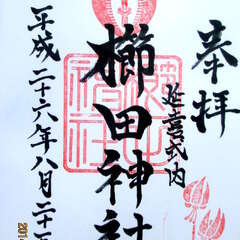 奉拝
延喜式内
櫛田神社
平成二十六年八月二十